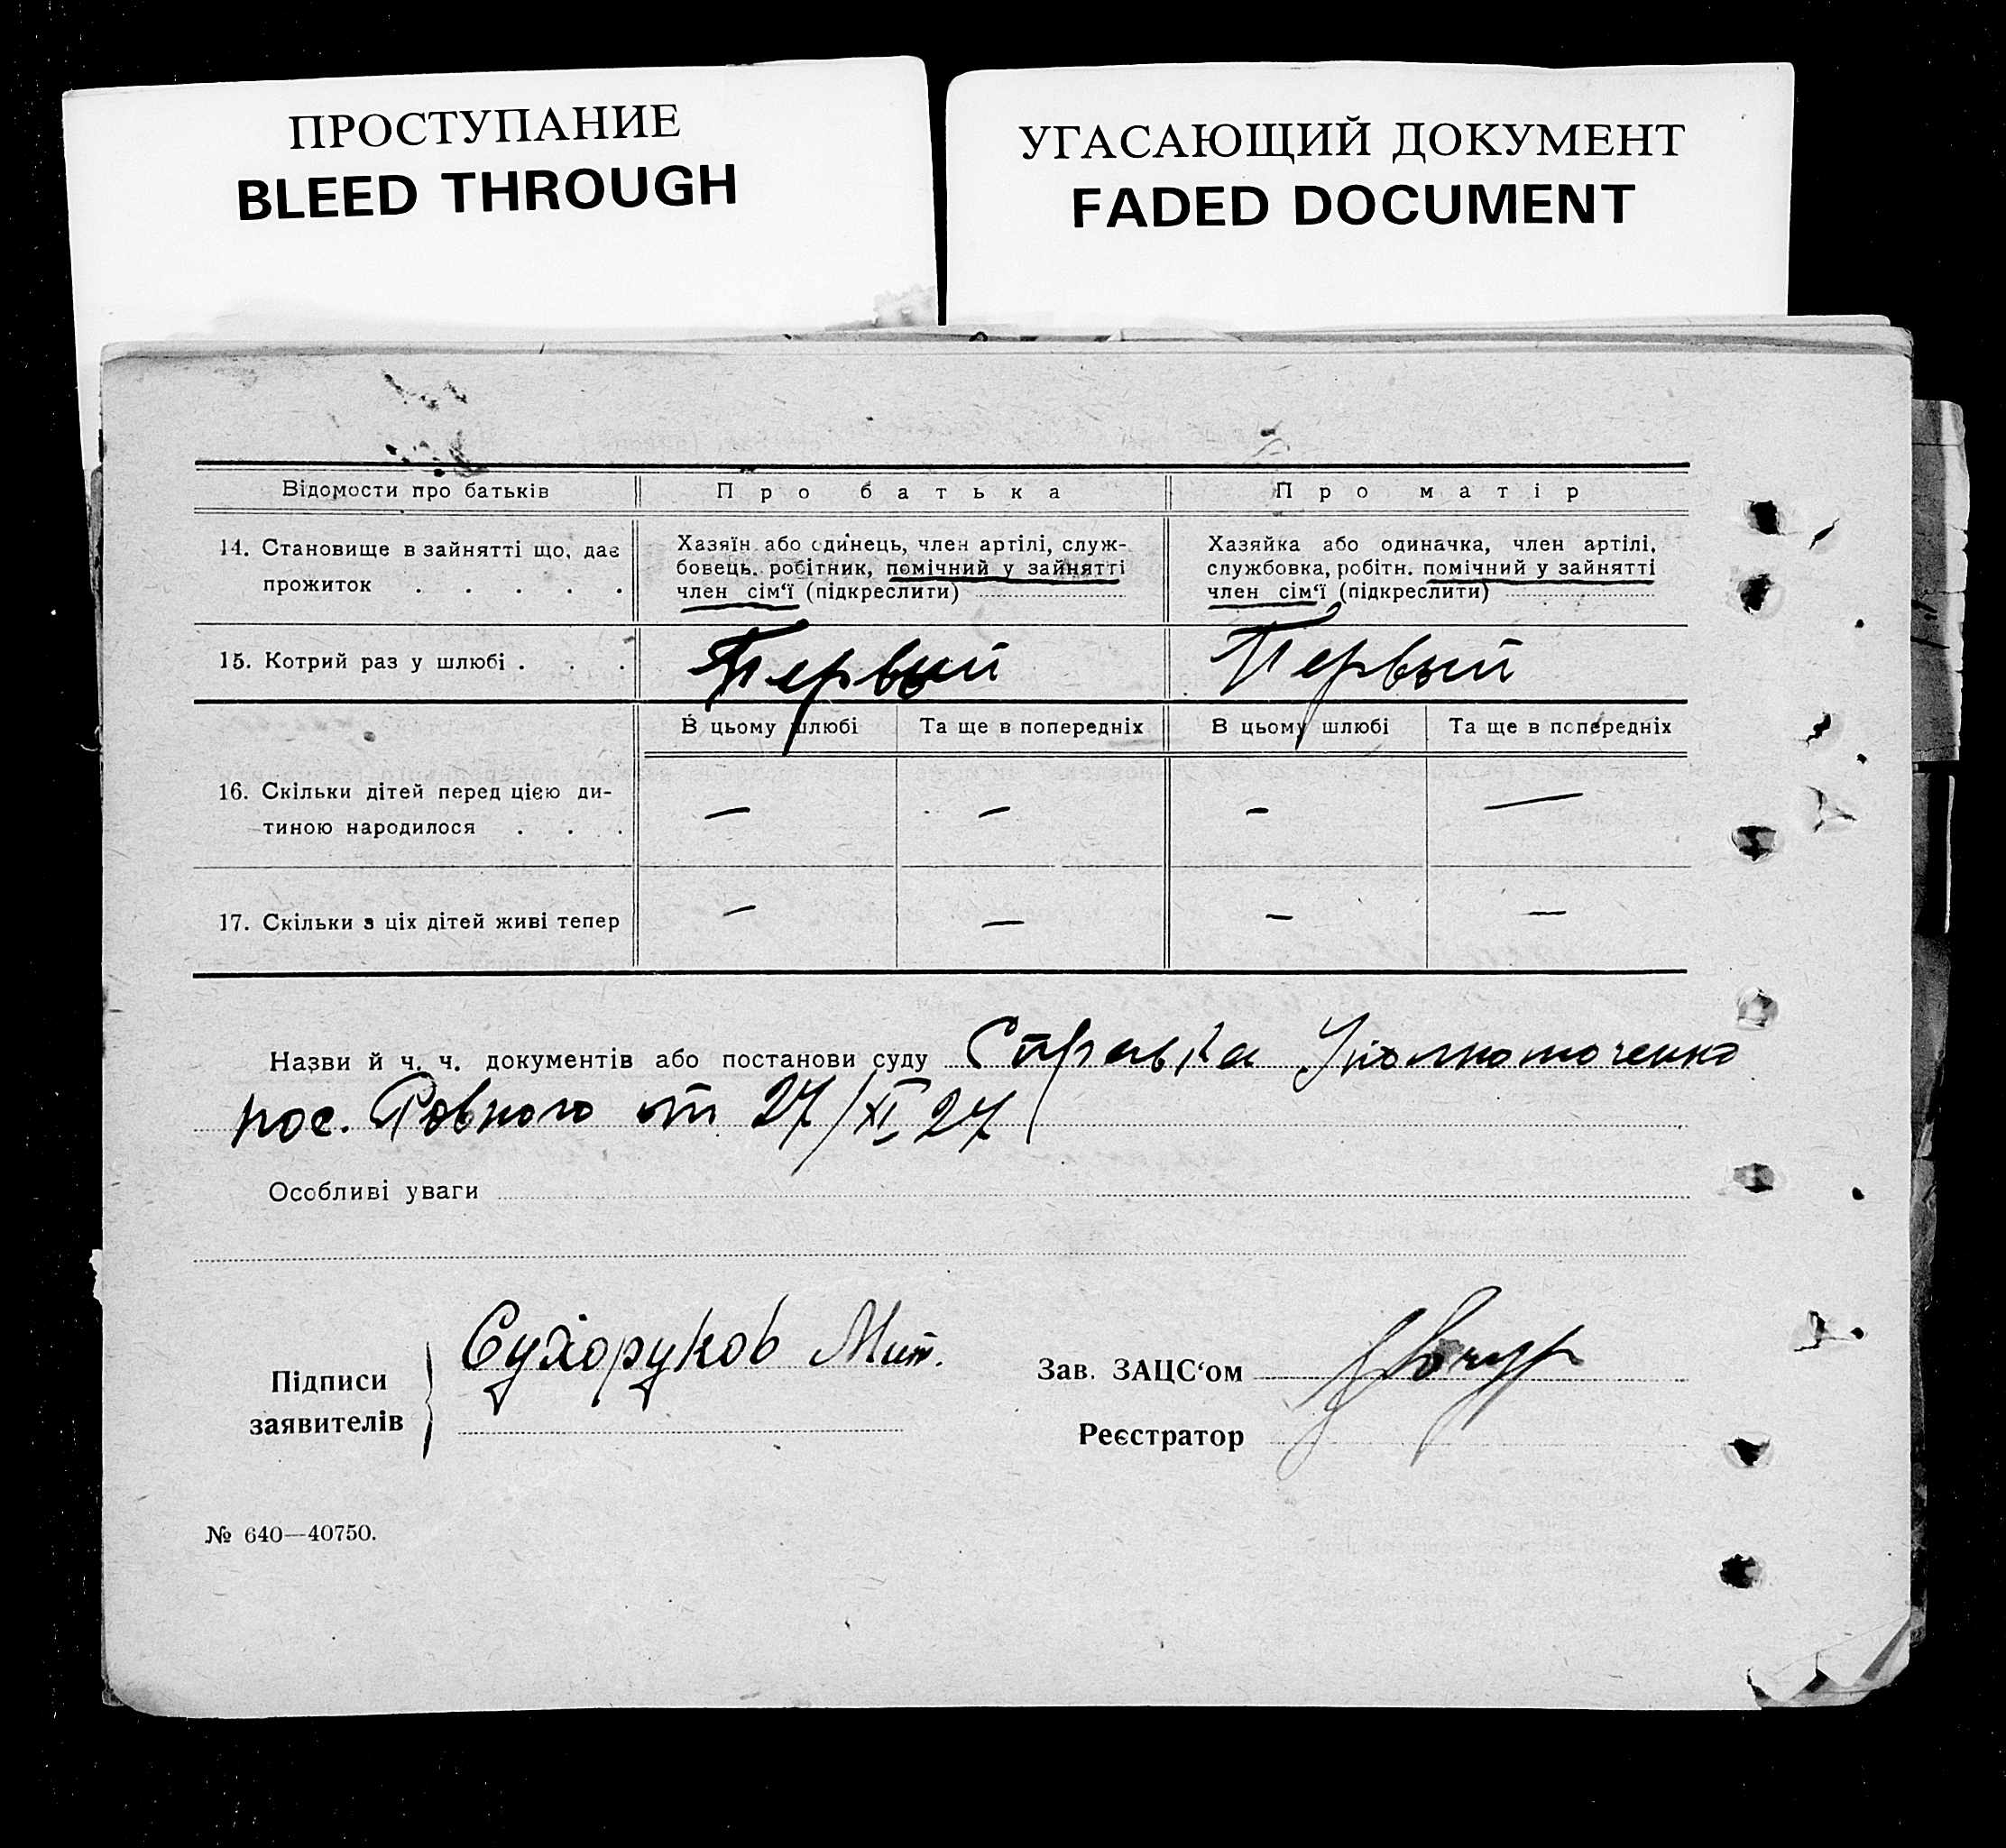 ПРОСТУПАНИЕ
BLEED THROUGH
УГАСАЮЩИЙ ДОКУМЕНТ
FADED DOCUMENT
Відомости про батьків
Про батька
Про матір
14. Становище в зайнятті що, дає
прожиток . . . . .
Хазяїн або одинець, член артілі, служ-
бовець. робітник, помічний у зайнятті
член сім‘ї (підкреслити)
Хазяйка або одиначка, член артілі,
службовка, робітн. помічний у зайнятті
член сім‘ї (підкреслити)
15. Котрий раз у шлюбі . . .
Первый
Первый
В цьому шлюбі
Та ще в попередніх
В цьому шлюбі
Та ще в попередніх
16. Скільки дітей перед цією ди-
тиною народилося . . .
— — — —
17. Скільки з ціх дітей живі тепер
— — — —
Назви й ч. ч. документів або постанови суду Справка Уполномоченно
пос. Ровного от 27/XI 27
Особливі уваги
Підписи
заявителів
Сухоруков Мит.
Зав. ЗАЦС‘ом
Реєстратор
№ 640—40750.